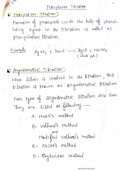 Precipitation Titration
Precipitation Titration :
Formation of precipitate with the help of
being used in the titration is called as
precipitation titration.
Example
(white ppt)
Argentometric Titration :
When Silver is involved in the titration, this
titration is known as Argentometric titration.
Four type of argentometric titration are there
They are listed as following :-
A. Mohr's method
B. Volhard's method
and
Modified Volhard's method
C. Fajan's method
D. Gaylussac method